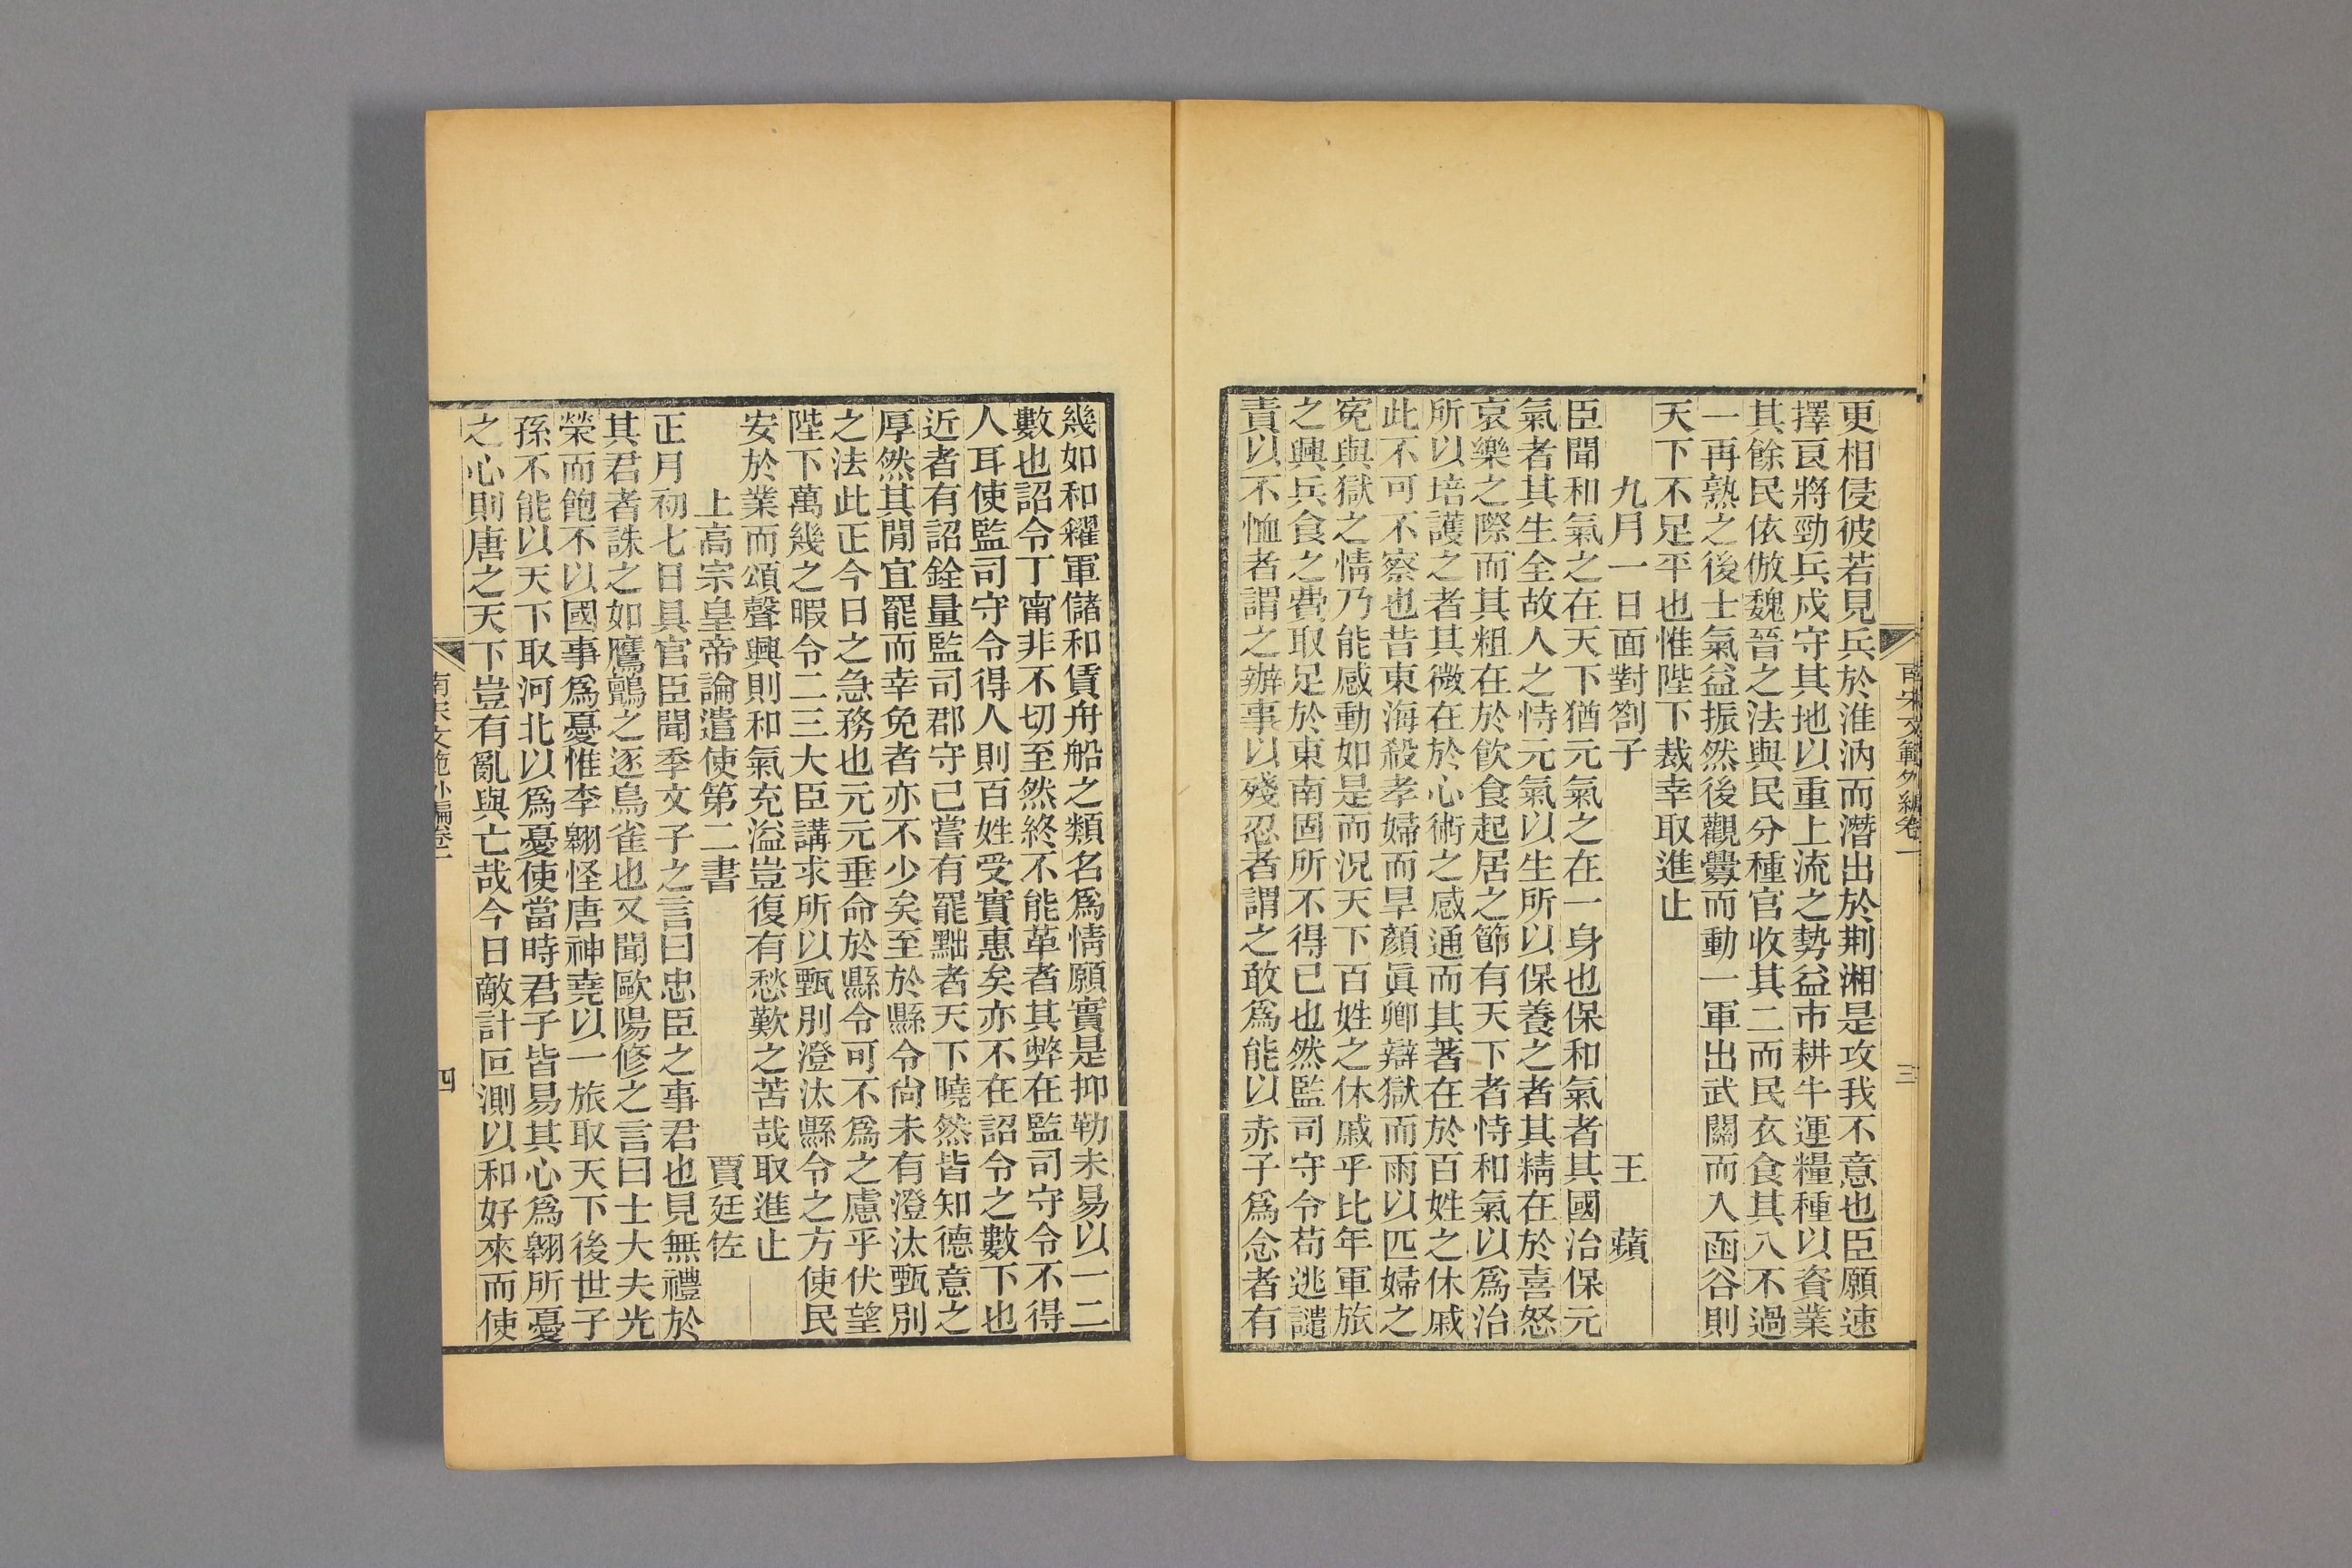 南宋文範外編卷一
三
更相侵彼若見兵於淮汭而潛出於荆湘是攻我不意也臣願速
擇良將勁兵戍守其地以重上流之勢益市耕牛運糧種以資業
其餘民依倣魏晉之法與民分種官收其二而民衣食其八不過
一再熟之後士氣益振然後觀釁而動一軍出武關而入函谷則
天下不足平也惟陛下裁幸取進止
九月一日面對劄子 王 蘋
臣聞和氣之在天下猶元氣之在一身也保和氣者其國治保元
氣者其生全故人之恃元氣以生所以保養之者其精在於喜怒
哀樂之際而其粗在於飲食起居之節有天下者恃和氣以爲治
所以培護之者其微在於心術之感通而其著在於百姓之休戚
此不可不察也昔東海殺孝婦而旱顏眞卿辯獄而雨以匹婦之
寃與獄之情乃能感動如是而況天下百姓之休戚乎比年軍旅
之興兵食之費取足於東南固所不得已也然監司守令苟逃譴
責以不恤者謂之辦事以殘忍者謂之敢爲能以赤子爲念者有
幾如和糴軍儲和賃舟船之類名爲情願實是抑勒未易以一二
數也詔令丁甯非不切至然終不能革者其弊在監司守令不得
人耳使監司守令得人則百姓受實惠矣亦不在詔令之數下也
近者有詔銓量監司郡守已嘗有罷黜者天下曉然皆知德意之
厚然其閒宜罷而幸免者亦不少矣至於縣令尙未有澄汰甄別
之法此正今日之急務也元元垂命於縣令可不爲之慮乎伏望
陛下萬幾之暇令二三大臣講求所以甄別澄汰縣令之方使民
安於業而頌聲興則和氣充溢豈復有愁歎之苦哉取進止
上高宗皇帝論遣使第二書 賈廷佐
正月初七日具官臣聞季文子之言曰忠臣之事君也見無禮於
其君者誅之如鷹鸇之逐鳥雀也又聞歐陽修之言曰士大夫光
榮而飽不以國事爲憂惟李翺怪唐神堯以一旅取天下後世子
孫不能以天下取河北以爲憂使當時君子皆易其心爲翺所憂
之心則唐之天下豈有亂與亡哉今日敵計叵測以和好來而使
南宋文範外編卷一
四